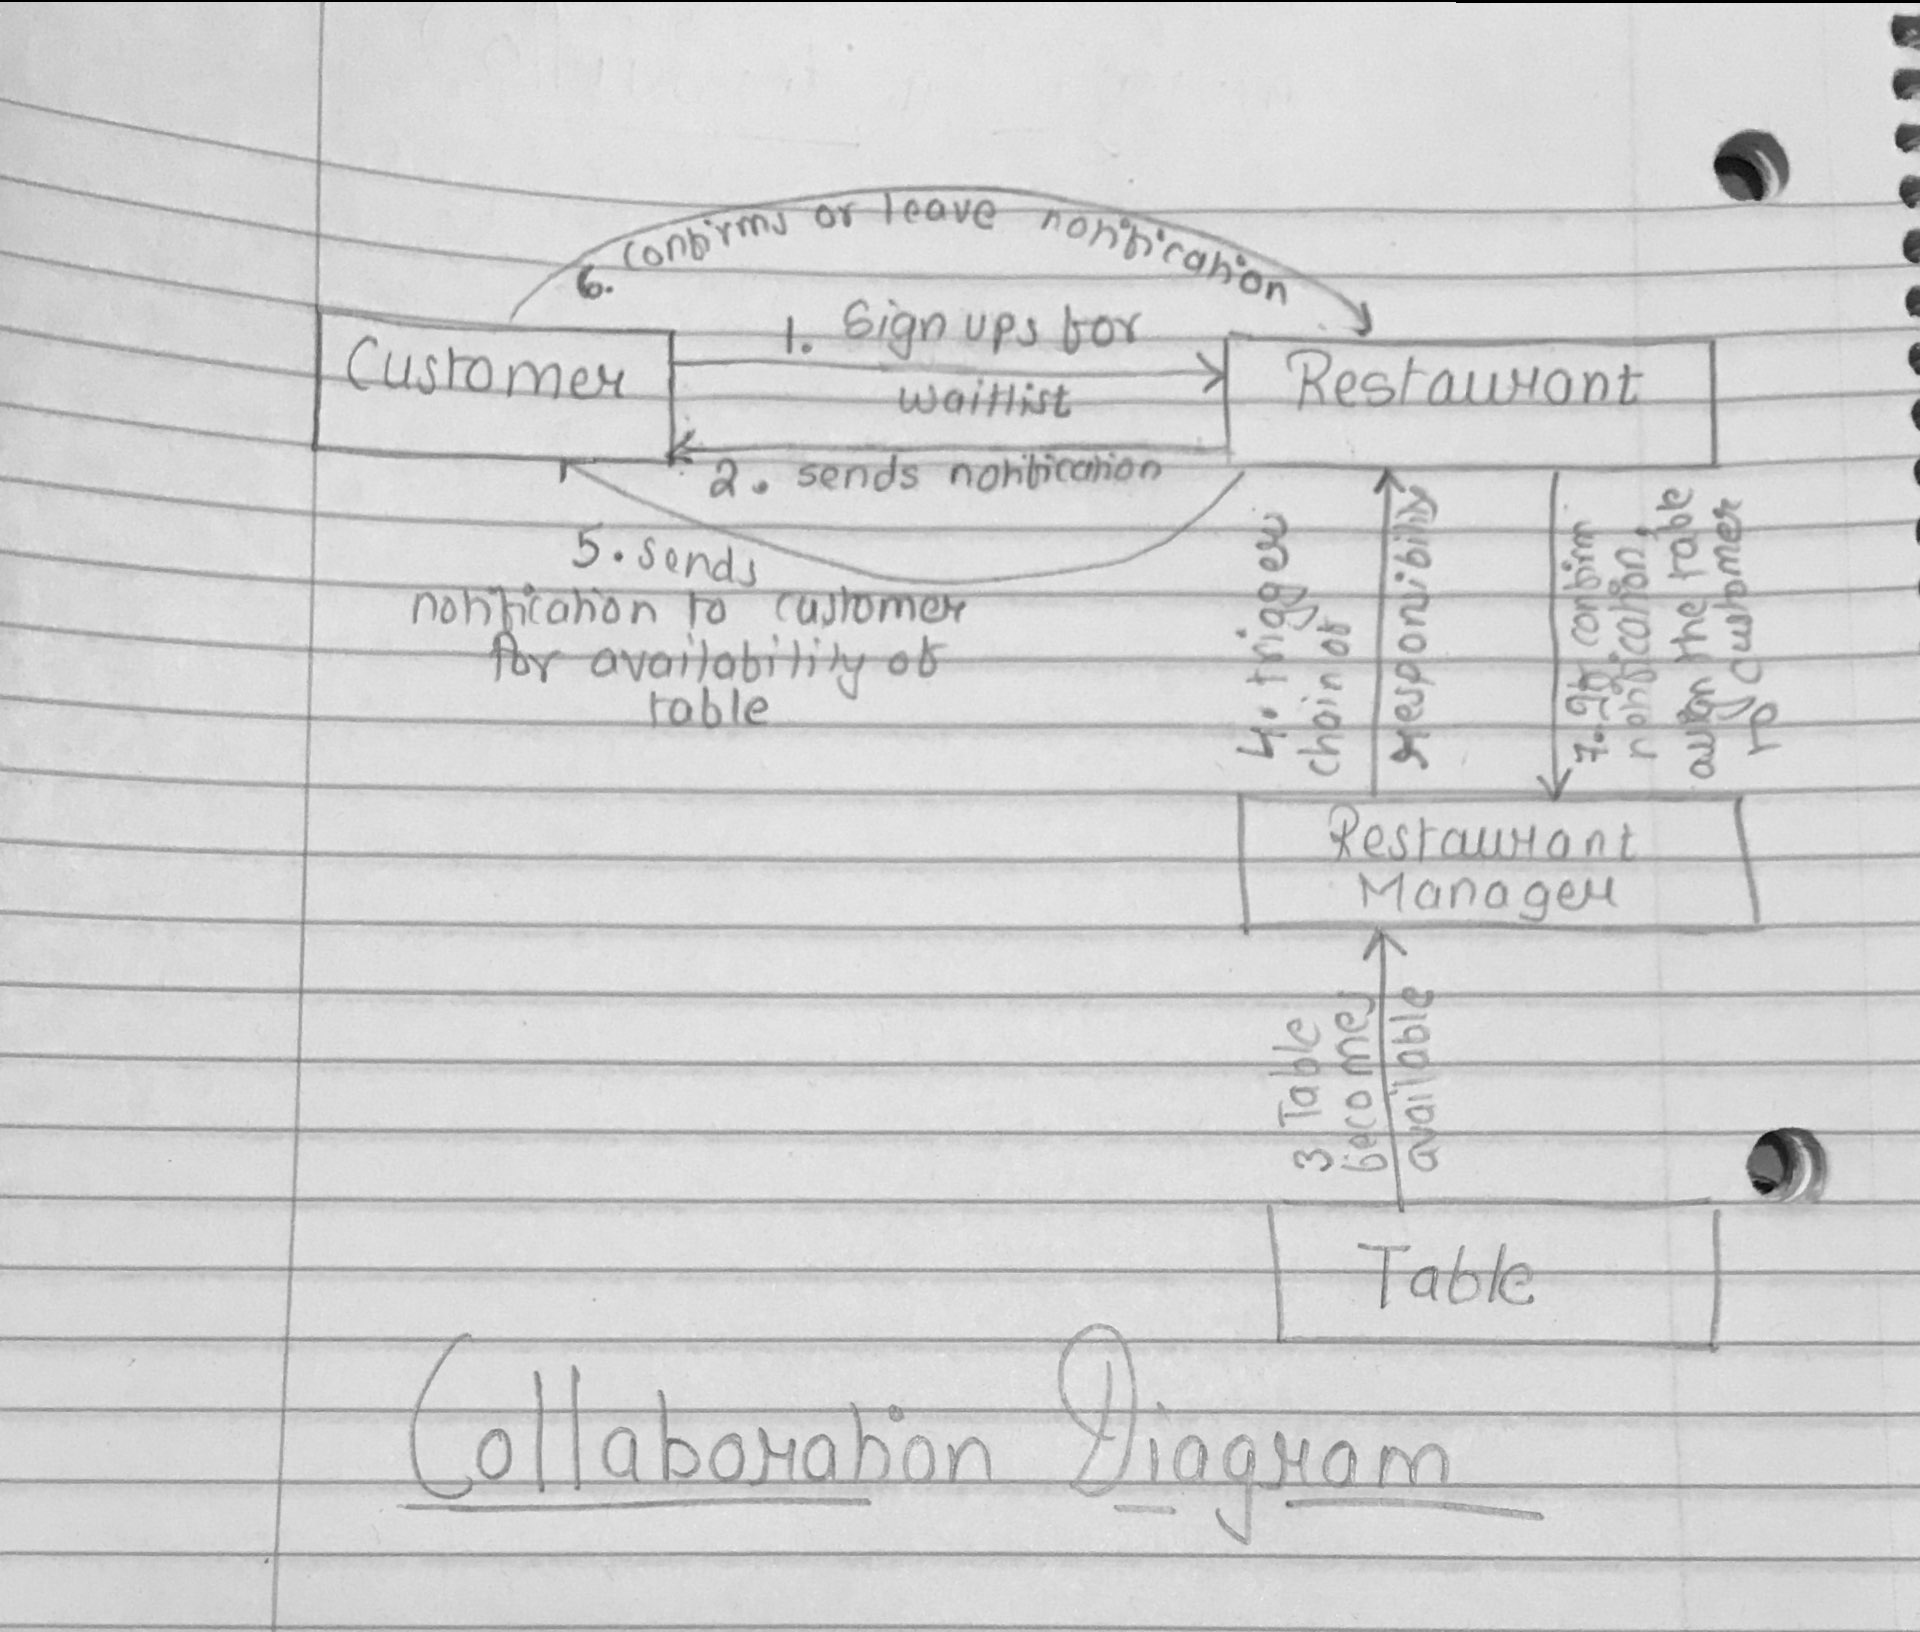 6. confirms or leave notification
1. Sign ups for
waitlist
Customer
Restaurant
2. sends notification
5. sends
notification to customer
for availability of
table
4. trigger
chain of
responsibility
7. If confirm
notification,
the table
to customer
Restaurant
Manager
3 Table
becomes
available
Table
Collaboration Diagram